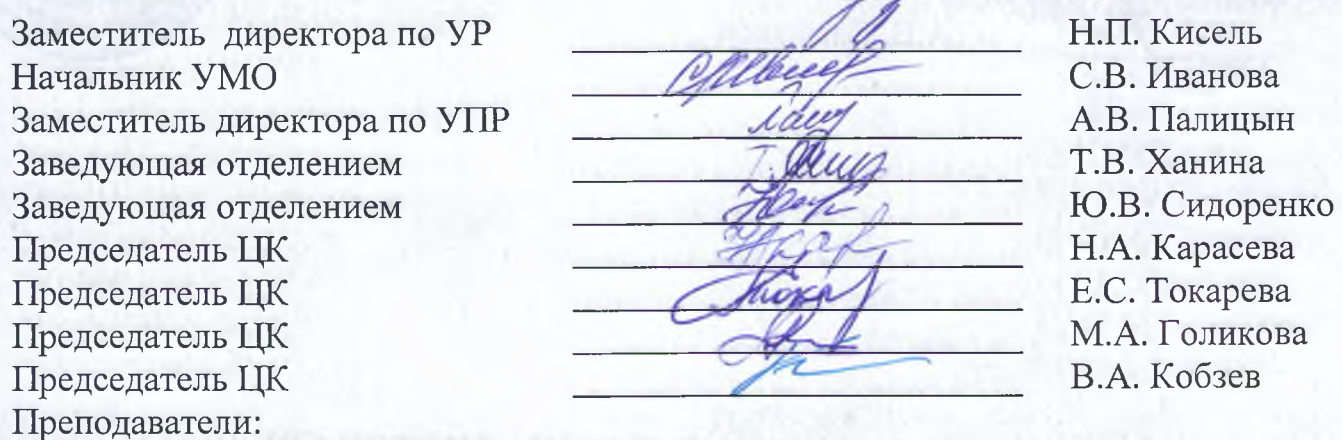 Заместитель директора по УР Н.П. Кисель
Начальник УМО С.В. Иванова
Заместитель директора по УПР А.В. Палицын
Заведующая отделением Т.В. Ханина
Заведующая отделением Ю.В. Сидоренко
Председатель ЦК Н.А. Карасева
Председатель ЦК Е.С. Токарева
Председатель ЦК М.А. Голикова
Председатель ЦК В.А. Кобзев
Преподаватели: